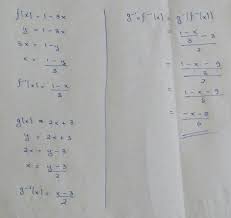 f(x) = 1 - 3x
y = 1 - 3x
3x = 1 - y
x = (1 - y)/3
f⁻¹(x) = (1 - x)/3
g(x) = 2x + 3
y = 2x + 3
2x = y - 3
x = (y - 3)/2
g⁻¹(x) = (x - 3)/2
g⁻¹ ∘ f⁻¹(x) = g⁻¹(f⁻¹(x))
= ((1 - x)/3 - 3)/2
= ((1 - x - 9)/3)/2
= (-x - 8)/6